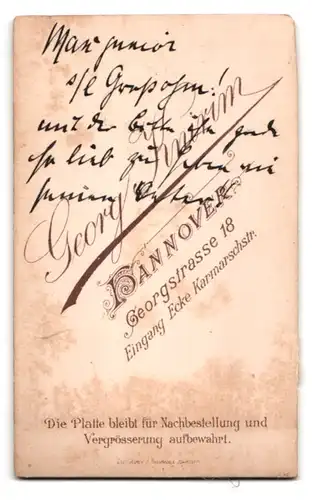 Max junior
s/l Großohm!
mit der Bitte ihn
so lieb zu haben wie
seinen Vater
Georg
HANNOVER
Georgstrasse 18
Eingang Ecke Karmarschstr.
Die Platte bleibt für Nachbestellung und
Vergrösserung aufbewahrt.